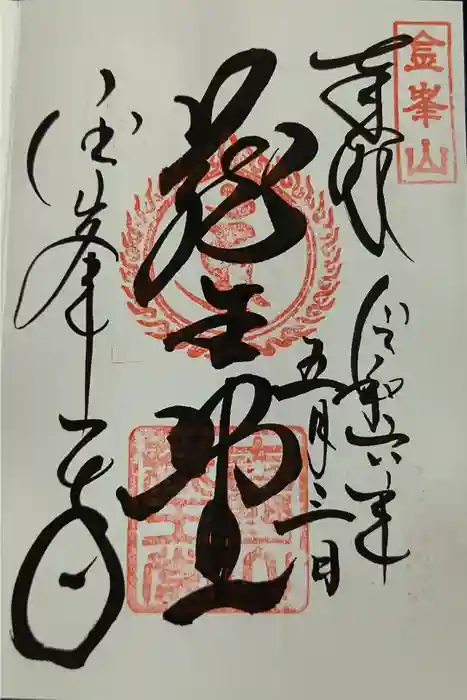 金峯山
奉拝
令和六年
五月三日
蔵王堂
金峯寺